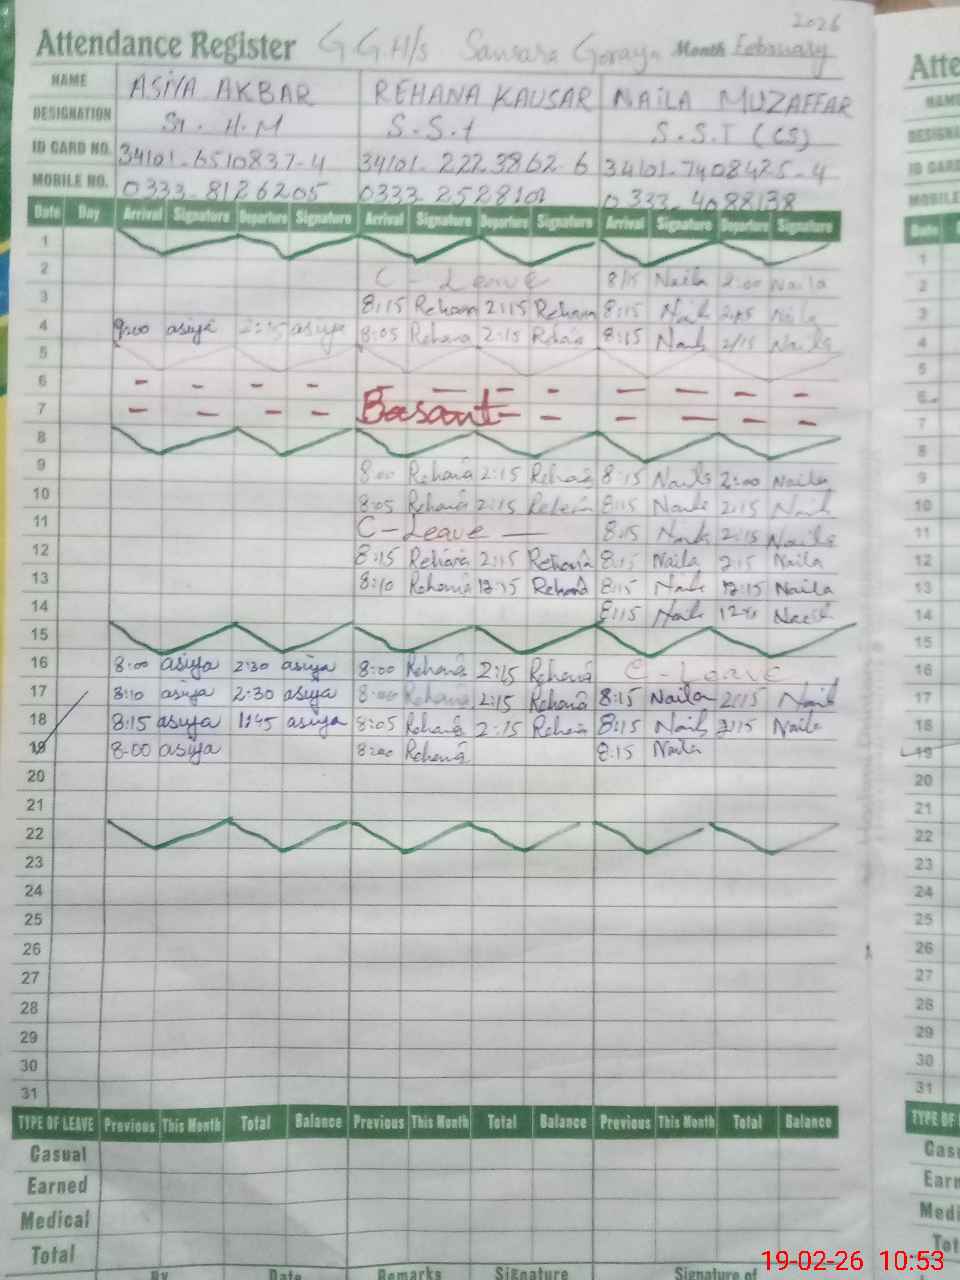 2026
Attendance Register G G H/s Sansara Goraya Month February
NAME ASIYA AKBAR REHANA KAUSAR NAILA MUZAFFAR
DESIGNATION Sr. H.M S.S.t S.S.T (CS)
ID CARD NO. 34101-6510837-4 34101-2223862-6 34101-7408425-4
MOBILE NO. 0333-8126205 0333-2528101 0333-4088138
Date Day Arrival Signature Departure Signature Arrival Signature Departure Signature Arrival Signature Departure Signature
1
2 C-Leave 8/15 Naila 2:00 Naila
3 8:15 Rehana 2:15 Rehana 8:15 Naila 2:15 Naila
4 9:00 asiya 2:15 asiya 8:05 Rehana 2:15 Rehana 8:15 Naila 2/15 Naila
5
6 - - - - - - - - - - - -
7 - - - - Basant - - - - - -
8
9 8:00 Rehana 2:15 Rehana 8:15 Naila 2:00 Naila
10 8:05 Rehana 2:15 Rehana 8:15 Naila 2:15 Naila
11 C-Leave — 8:15 Naila 2:15 Naila
12 8:15 Rehana 2:15 Rehana 8:15 Naila 2:15 Naila
13 8:10 Rehana 12:15 Rehana 8:15 Naila 12:15 Naila
14 8:15 Naila Naila
15
16 8:00 asiya 2:30 asiya 8:00 Rehana 2:15 Rehana C-Leave
17 8:10 asiya 2:30 asiya 8:00 Rehana 2:15 Rehana 8:15 Naila 2:15 Naila
18 8:15 asiya 1:45 asiya 8:05 Rehana 2:15 Rehana 8:15 Naila 2:15 Naila
19 8:00 asiya 8:00 Rehana 8:15 Naila
20
21
22
23
24
25
26
27
28
29
30
31
TYPE OF LEAVE Previous This Month Total Balance Previous This Month Total Balance Previous This Month Total Balance
Casual
Earned
Medical
Total
By Date Remarks Signature Signature of
19-02-26 10:53